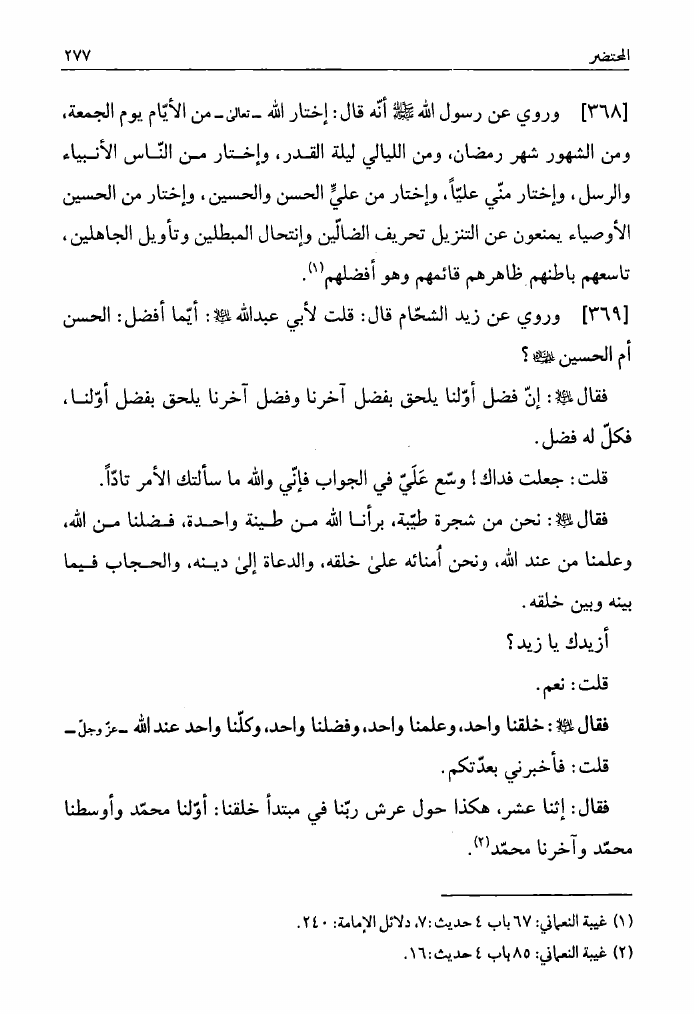 المحتضر ٢٧٧
[٣٦٨] وروي عن رسول الله ﷺ أنّه قال: إختار الله ـ تعالى ـ من الأيّام يوم الجمعة،
ومن الشهور شهر رمضان، ومن الليالي ليلة القـدر، وإخـتار مـن النّـاس الأنـبياء
والرسل، وإختار منّي عليّاً، وإختار من عليٍّ الحسن والحسين، وإختار من الحسين
الأوصياء يمنعون عن التنزيل تحريف الضالّين وإنتحال المبطلين وتأويل الجاهلين،
تاسعهم باطنهم ظاهرهم قائمهم وهو أفضلهم(١).
[٣٦٩] وروي عن زيد الشحّام قال: قلت لأبي عبدالله ﷺ: أيّما أفضل: الحسن
أم الحسين ؟
فقال: إنّ فضل أوّلنا يلحق بفضل آخرنا وفضل آخرنا يلحق بفضل أوّلنـا،
فكلّ له فضل.
قلت: جعلت فداك! وسّع عَلَيّ في الجواب فإنّي والله ما سألتك الأمر تادّاً.
فقال: نحن من شجرة طيّبة، برأنـا الله مـن طـينة واحـدة، فـضلنا مـن الله،
وعلمنا من عند الله، ونحن اُمنائه علىٰ خلقه، والدعاة إلىٰ ديـنه، والحـجاب فـيما
بينه وبين خلقه.
أزيدك يا زيد؟
قلت: نعم.
فقال: خلقنا واحد، وعلمنا واحد، وفضلنا واحد، وكلّنا واحد عند الله ـ عزّ وجلّ ـ
قلت: فأخبرني بعدّتكم.
فقال: إثنا عشر، هكذا حول عرش ربّنا في مبتدأ خلقنا: أوّلنا محمّد وأوسطنا
محمّد وآخرنا محمّد(٢).
(١) غيبة النعماني: ٦٧ باب ٤ حديث: ٧، دلائل الإمامة: ٢٤٠.
(٢) غيبة النعماني: ٨٥ باب ٤ حديث: ١٦.